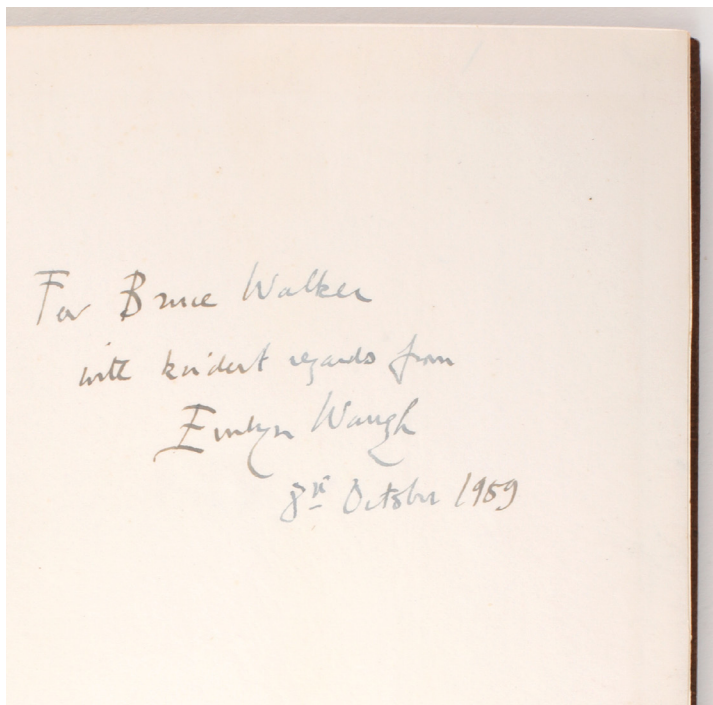 For Bruce Walker
with kindest regards from
Evelyn Waugh
8th October 1959